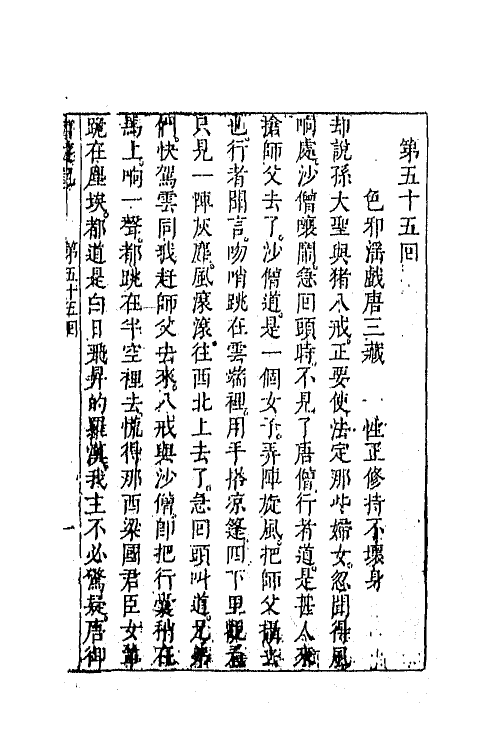 第五十五回
色邪滛戲唐三藏　性正修持不壞身
却說孫大聖與猪八戒正要使法定那些婦女忽聞得風
响處沙僧嚷鬧急回頭時不見了唐僧行者道是甚人來
搶師父去了沙僧道是一個女子弄陣旋風把師父攝去
也行者聞言唿哨跳在雲端裡用手搭凉篷四下里觀看
只見一陣灰塵風滚滚往西北上去了急回頭叫道兄弟
們快駕雲同我赶師父去來八戒與沙僧即把行囊稍在
馬上响一聲都跳在半空裡去慌得那西梁國君臣女輩
跪在塵埃都道是白日飛昇的羅漢我主不必驚疑唐御
第五十五回
一